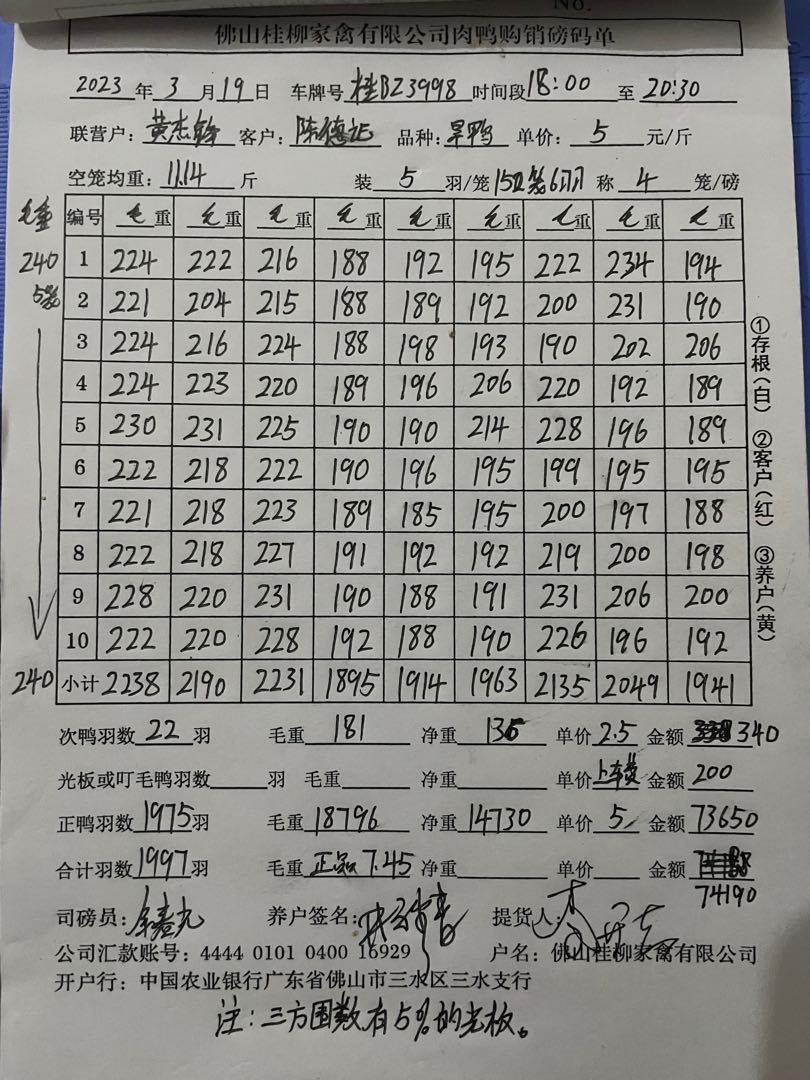 No.
佛山桂柳家禽有限公司肉鸭购销磅码单
2023 年 3 月 19 日 车牌号 桂BZ3998 时间段 18:00 至 20:30
联营户: 黄杰 客户: 陈德 品种: 旱鸭 单价: 5 元/斤
空笼均重: 11.14 斤 装 5 羽/笼 15口笼6羽 称 4 笼/磅
毛重 编号 毛重 毛重 毛重 毛重 毛重 毛重 毛重 毛重 毛重
240 1 224 222 216 188 192 195 222 234 194
5笼 2 221 204 215 188 189 192 200 231 190
3 224 216 224 188 198 193 190 202 206
4 224 223 220 189 196 206 220 192 189
5 230 231 225 190 190 214 228 196 189
6 222 218 222 190 196 195 199 195 195
7 221 218 223 189 185 195 200 197 188
8 222 218 227 191 192 192 219 200 198
9 228 220 231 190 188 191 231 206 200
10 222 220 228 192 188 190 226 196 192
240 小计 2238 2190 2231 1895 1914 1963 2135 2049 1941
①存根(白) ②客户(红) ③养户(黄)
次鸭羽数 22 羽 毛重 181 净重 136 单价 2.5 金额 340
光板或叮毛鸭羽数 羽 毛重 净重 单价 上车费 金额 200
正鸭羽数 1975 羽 毛重 18796 净重 14730 单价 5 金额 73650
合计羽数 1997 羽 毛重 正品 7.45 净重 单价 金额
74190
司磅员: 养户签名: 提货人:
公司汇款账号: 4444 0101 0400 16929 户名: 佛山桂柳家禽有限公司
开户行: 中国农业银行广东省佛山市三水区三水支行
注:三方围数有5%的光板。